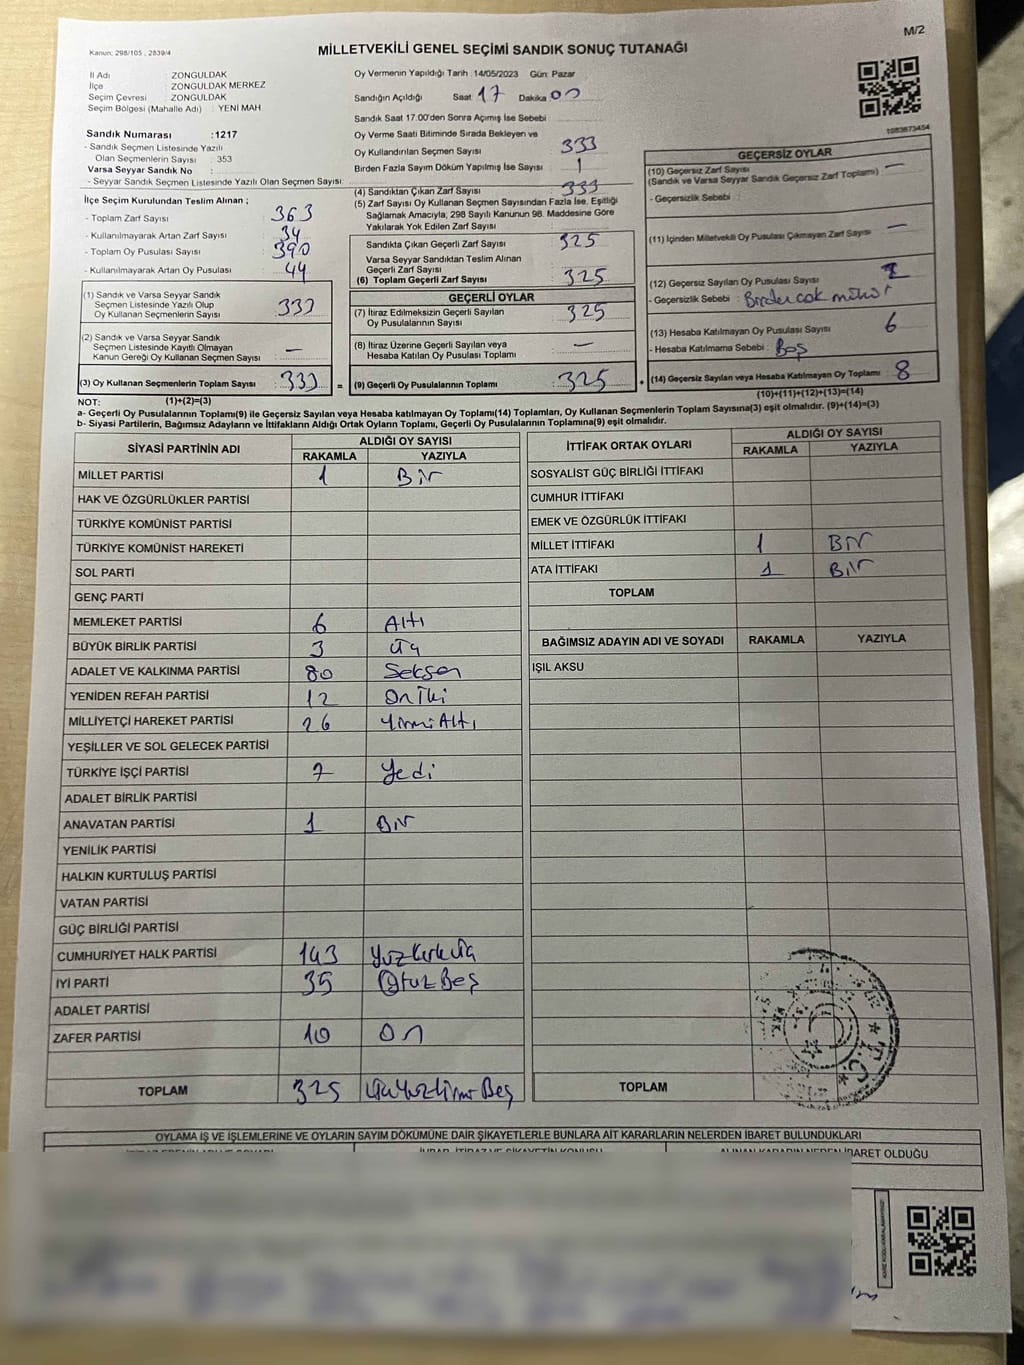 M/2
Kanun: 298/105 , 2839/4
MİLLETVEKİLİ GENEL SEÇİMİ SANDIK SONUÇ TUTANAĞI
İl Adı ZONGULDAK
İlçe ZONGULDAK MERKEZ
Seçim Çevresi ZONGULDAK
Seçim Bölgesi (Mahalle Adı) : YENİ MAH.
Sandık Numarası :1217
- Sandık Seçmen Listesinde Yazılı
Olan Seçmenlerin Sayısı : 353
Varsa Seyyar Sandık No :
- Seyyar Sandık Seçmen Listesinde Yazılı Olan Seçmen Sayısı:
İlçe Seçim Kurulundan Teslim Alınan ;
- Toplam Zarf Sayısı 363
- Kullanılmayarak Artan Zarf Sayısı 34
- Toplam Oy Pusulası Sayısı 390
- Kullanılmayarak Artan Oy Pusulası 44
(1) Sandık ve Varsa Seyyar Sandık
Seçmen Listesinde Yazılı Olup
Oy Kullanan Seçmenlerin Sayısı 333
(2) Sandık ve Varsa Seyyar Sandık
Seçmen Listesinde Kayıtlı Olmayan
Kanun Gereği Oy Kullanan Seçmen Sayısı —
(3) Oy Kullanan Seçmenlerin Toplam Sayısı 333 =
(1)+(2)=(3)
Oy Vermenin Yapıldığı Tarih :14/05/2023 Gün: Pazar
Sandığın Açıldığı Saat 17 Dakika 00
Sandık Saat 17.00'den Sonra Açımış İse Sebebi
Oy Verme Saati Bitiminde Sırada Bekleyen ve
Oy Kullandırılan Seçmen Sayısı 333
Birden Fazla Sayım Döküm Yapılmış İse Sayısı 1
(4) Sandıktan Çıkan Zarf Sayısı 333
(5) Zarf Sayısı Oy Kullanan Seçmen Sayısından Fazla İse, Eşitliği
Sağlamak Amacıyla; 298 Sayılı Kanunun 98. Maddesine Göre
Yakılarak Yok Edilen Zarf Sayısı
Sandıkta Çıkan Geçerli Zarf Sayısı 325
Varsa Seyyar Sandıktan Teslim Alınan
Geçerli Zarf Sayısı
(6) Toplam Geçerli Zarf Sayısı 325
GEÇERLİ OYLAR
(7) İtiraz Edilmeksizin Geçerli Sayılan
Oy Pusulalarının Sayısı 325
(8) İtiraz Üzerine Geçerli Sayılan veya
Hesaba Katılan Oy Pusulası Toplamı —
(9) Geçerli Oy Pusulalarının Toplamı 325 +
1083673454
GEÇERSİZ OYLAR
(10) Geçersiz Zarf Sayısı
(Sandık ve Varsa Seyyar Sandık Geçersiz Zarf Toplamı) —
- Geçersizlik Sebebi :
(11) İçinden Milletvekili Oy Pusulası Çıkmayan Zarf Sayısı —
(12) Geçersiz Sayılan Oy Pusulası Sayısı
- Geçersizlik Sebebi :
(13) Hesaba Katılmayan Oy Pusulası Sayısı 6
- Hesaba Katılmama Sebebi : Boş
(14) Geçersiz Sayılan veya Hesaba Katılmayan Oy Toplamı 8
(10)+(11)+(12)+(13)=(14)
NOT:
a- Geçerli Oy Pusulalarının Toplamı(9) ile Geçersiz Sayılan veya Hesaba katılmayan Oy Toplamı(14) Toplamları, Oy Kullanan Seçmenlerin Toplam Sayısına(3) eşit olmalıdır. (9)+(14)=(3)
b- Siyasi Partilerin, Bağımsız Adayların ve İttifakların Aldığı Ortak Oyların Toplamı, Geçerli Oy Pusulalarının Toplamına(9) eşit olmalıdır.
SİYASİ PARTİNİN ADI ALDIĞI OY SAYISI
RAKAMLA YAZIYLA
MİLLET PARTİSİ 1 Bir
HAK VE ÖZGÜRLÜKLER PARTİSİ
TÜRKİYE KOMÜNİST PARTİSİ
TÜRKİYE KOMÜNİST HAREKETİ
SOL PARTİ
GENÇ PARTİ
MEMLEKET PARTİSİ 6 Altı
BÜYÜK BİRLİK PARTİSİ 3 Üç
ADALET VE KALKINMA PARTİSİ 80 Seksen
YENİDEN REFAH PARTİSİ 12 Oniki
MİLLİYETÇİ HAREKET PARTİSİ 26 YirmiAltı
YEŞİLLER VE SOL GELECEK PARTİSİ
TÜRKİYE İŞÇİ PARTİSİ 7 Yedi
ADALET BİRLİK PARTİSİ
ANAVATAN PARTİSİ 1 Bir
YENİLİK PARTİSİ
HALKIN KURTULUŞ PARTİSİ
VATAN PARTİSİ
GÜÇ BİRLİĞİ PARTİSİ
CUMHURİYET HALK PARTİSİ 143 YüzKırkÜç
İYİ PARTİ 35 OtuzBeş
ADALET PARTİSİ
ZAFER PARTİSİ 10 On
TOPLAM 325 ÜçYüzYirmiBeş
İTTİFAK ORTAK OYLARI ALDIĞI OY SAYISI
RAKAMLA YAZIYLA
SOSYALİST GÜÇ BİRLİĞİ İTTİFAKI
CUMHUR İTTİFAKI
EMEK VE ÖZGÜRLÜK İTTİFAKI
MİLLET İTTİFAKI 1 Bir
ATA İTTİFAKI 1 Bir
TOPLAM
BAĞIMSIZ ADAYIN ADI VE SOYADI RAKAMLA YAZIYLA
IŞIL AKSU
TOPLAM
T.C.
OYLAMA İŞ VE İŞLEMLERİNE VE OYLARIN SAYIM DÖKÜMÜNE DAİR ŞİKAYETLERLE BUNLARA AİT KARARLARIN NELERDEN İBARET BULUNDUKLARI
İBARET OLDUĞU